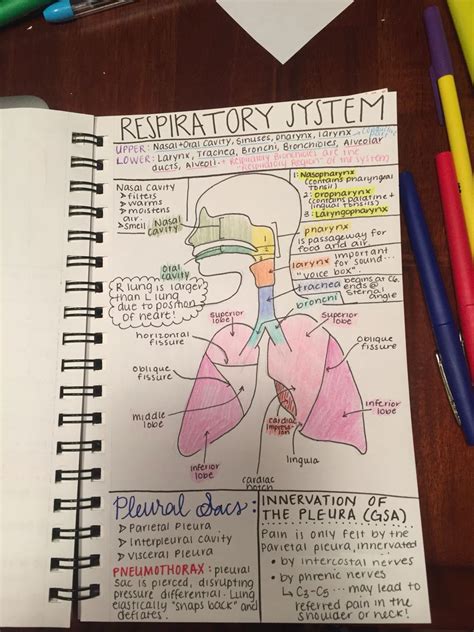 RESPIRATORY SYSTEM
UPPER: Nasal+Oral Cavity, Sinuses, pharynx, larynx
LOWER: Larynx, Trachea, Bronchi, Bronchioles, Alveolar
ducts, Alveoli * Respiratory Bronchioles are the
"Respiratory Region" of the system
Nasal Cavity
> filters
> warms
> moistens
air
> smell
Nasal
Cavity
Oral
cavity
R lung is larger
than L lung
due to position
of heart!
1: Nasopharynx
(contains pharyngeal
tonsil)
2: Oropharynx
(contains palatine +
lingual tonsils)
3: Laryngopharynx
pharynx
is passageway for
food and air.
larynx important
for sound...
"voice box".
trachea begins at C6.
ends @
sternal
angle
bronchi
superior
lobe
horizontal
fissure
oblique
fissure
middle
lobe
inferior
lobe
cardiac
notch
superior
lobe
oblique
fissure
inferior
lobe
cardiac
impression
lingula
Pleural Sacs:
> Parietal Pleura
> Interpleural cavity
> Visceral Pleura
PNEUMOTHORAX: pleural
sac is pierced, disrupting
pressure differential. Lung
elastically "snaps back" and
deflates.
INNERVATION OF
THE PLEURA (GSA)
Pain is only felt by the
Parietal pleura, innervated
• by intercostal nerves
• by phrenic nerves
↳ C3-C5... may lead to
referred pain in the
shoulder or neck!